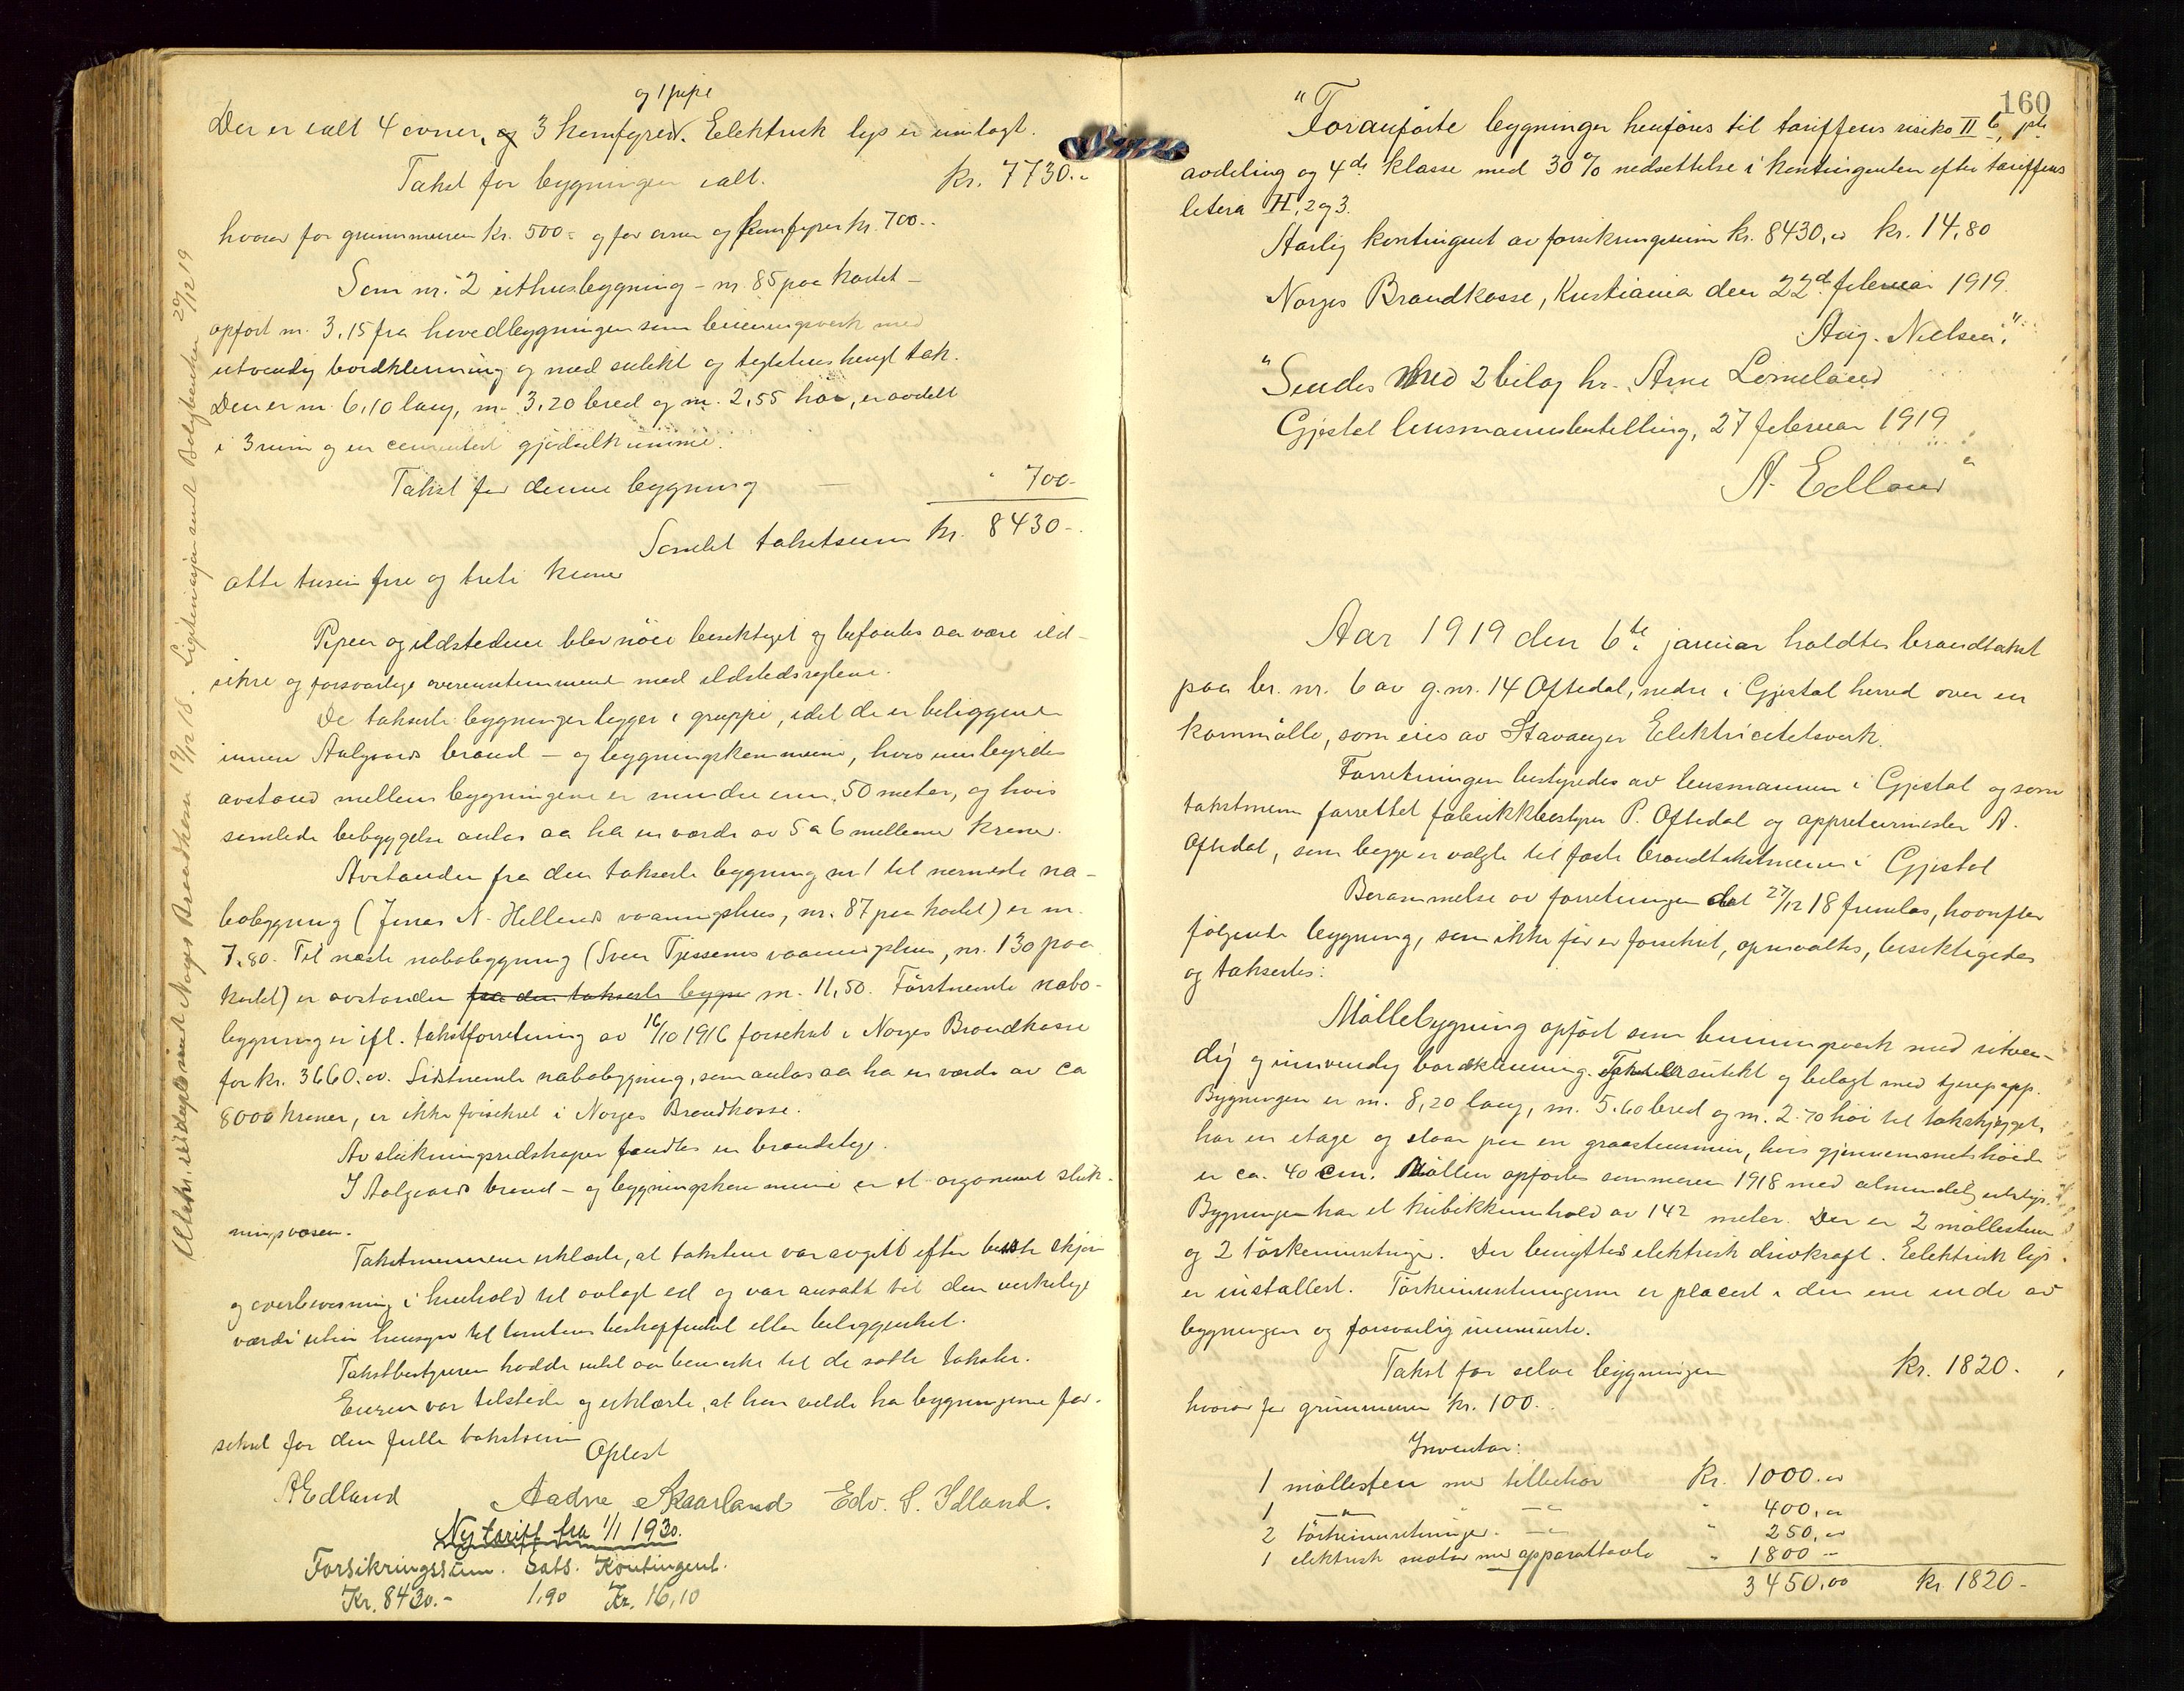 og 1 pipe
Der er ialt 4 ovner, og 3 komfyrer. Elektrisk lys er indlagt.
Takst for bygningen ialt. kr. 7730.-
hvorav for grunnmuren kr. 500.- og for ovner og komfyrer kr. 700.-
Som nr. 2 uthusbygning - nr. 85 paa kartet -
opført m. 3.15 fra hovedbygningen som bindingsverk med
utvendig bordklædning og med sutekt og teglstenshengt tak.
Den er m. 6,10 lang, m. 3,20 bred og m. 2,55 høi, er avdelt
i 3 rum og en cementert gjødselkumme.
Takst for denne bygning - " 700-
Samlet takstsum kr. 8430-
otte tusen fire og treti kroner
Pipen og ildstedene blev nøie besiktiget og befantes aa være ild-
sikre og forsvarlige overensstemmende med ildstedsreglene.
De takserte bygninger ligger i gruppe, idet de er beliggende
innen Aalgaards brand- og bygningskommune, hvis innbyrdes
avstand mellem bygningene er mindre enn 50 meter, og hvis
samlede bebyggelse antas aa ha en værdi av 5 a 6 millioner kroner.
Avstanden fra den takserte bygning nr 1 til nærmeste na-
bobygning (Jonas N. Hellands vaaningshus, nr. 87 paa kartet) er m.
7.80. Til næste nabobygning (Sven Tjessems vaaningshus, nr. 130 paa
kartet) er avstanden fra den takserte bygn m. 11,50. Førstnevnte nabo-
bygning er ifl. takstforretning av 16/10 1916 forsikret i Norges Brandkasse
for kr. 3660.00. Sistnevnte nabobygning, som antas aa ha en værdi av ca
8000 kroner, er ikke forsikret i Norges Brandkasse.
Av slukningsredskaper fandtes en brandstige.
I Aalgaards brand- og bygningskommune er et organisert sluk-
ningsvæsen.
Takstmennene erklærte, at takstene var avgitt efter beste skjøn
og overbevisning i henhold til avlagt ed og var ansatt til den virkelige
værdi uten hensyn til tomtens beskaffenhet eller beliggenhet.
Takstbestyreren hadde intet aa bemerke til de satte takster.
Eieren var tilstede og erklærte, at han vilde ha bygningene for-
sikret for den fulle takstsum
Oplest
A Edland Aadne Skaarland Edv. S. Idland.
Ny tariff fra 1/1 1930.
Forsikringssum. Sats. Kontingent.
Kr. 8430.- 1,90 Kr. 16,10
Norges Brandkasse 19/12 18. Legitimasjon sendt 29/12 19
160
"Foranførte bygninger henføres til tariffens risiko II b, 
avdeling og 4de klasse med 30% nedsettelse i kontingenten efter tariffens
litera H, 2 og 3.
Aarlig kontingent av forsikringssum kr. 8430,00 kr. 14,80
Norges Brandkasse, Kristiania den 22de februar 1919.
Aug. Nielsen."
"Sendes med 2 bilag hr. Arne Lomeland
Gjestal lensmannsbestilling, 27 februar 1919
A. Edland"
Aar 1919 den 6te januar holdtes brandtakst
paa br. nr. 6 av g.nr. 14 Oftedal, nedre i Gjestal herred over en
kornmølle, som eies av Stavanger Elektricitetsverk.
Forretningen bestyredes av lensmannen i Gjestal og som
takstmenn forrettet fabrikkbestyrer P. Oftedal og appreturmester A.
Oftedal, som begge er valgte til faste brandtakstmenn i Gjestal
Berammelse av forretningen dat 27/12 18 fremlas, hvorefter
følgende bygning, som ikke før er forsikret, opmaaltes, besiktigedes
og takseres:
Møllebygning opført som bindingsverk med utven-
dig og innvendig bordklædning. Taket er sutekt og belagt med tjerepapp.
Bygningen er m. 8,20 lang, m. 5.60 bred og m. 2.70 høi til takskjegget,
har en etage og staar paa en graastensmur, hvis gjennemsnitshøide
er ca. 40 cm. Møllen opførtes sommeren 1918 med almindelig
Bygningen har et kubikkinnhold av 142 meter. Der er 2 møllestene
og 2 tørkeinnretninger. Der benyttes elektrisk drivkraft. Elektrisk lys
er installert. Tørkeinnretningerne er placert i den ene ende av
bygningen og forsvarlig innmurte.
Takst for selve bygningen kr. 1820.
hvorav for grunnmuren kr. 100.
Inventar:
1 møllesten med tilbehør kr. 1000.00
1 -"- -"- " 400,00
2 tørkeinnretninger -"- " 250,00
1 elektrisk motor med apparattavle " 1800 -
3450,00 kr. 1820-